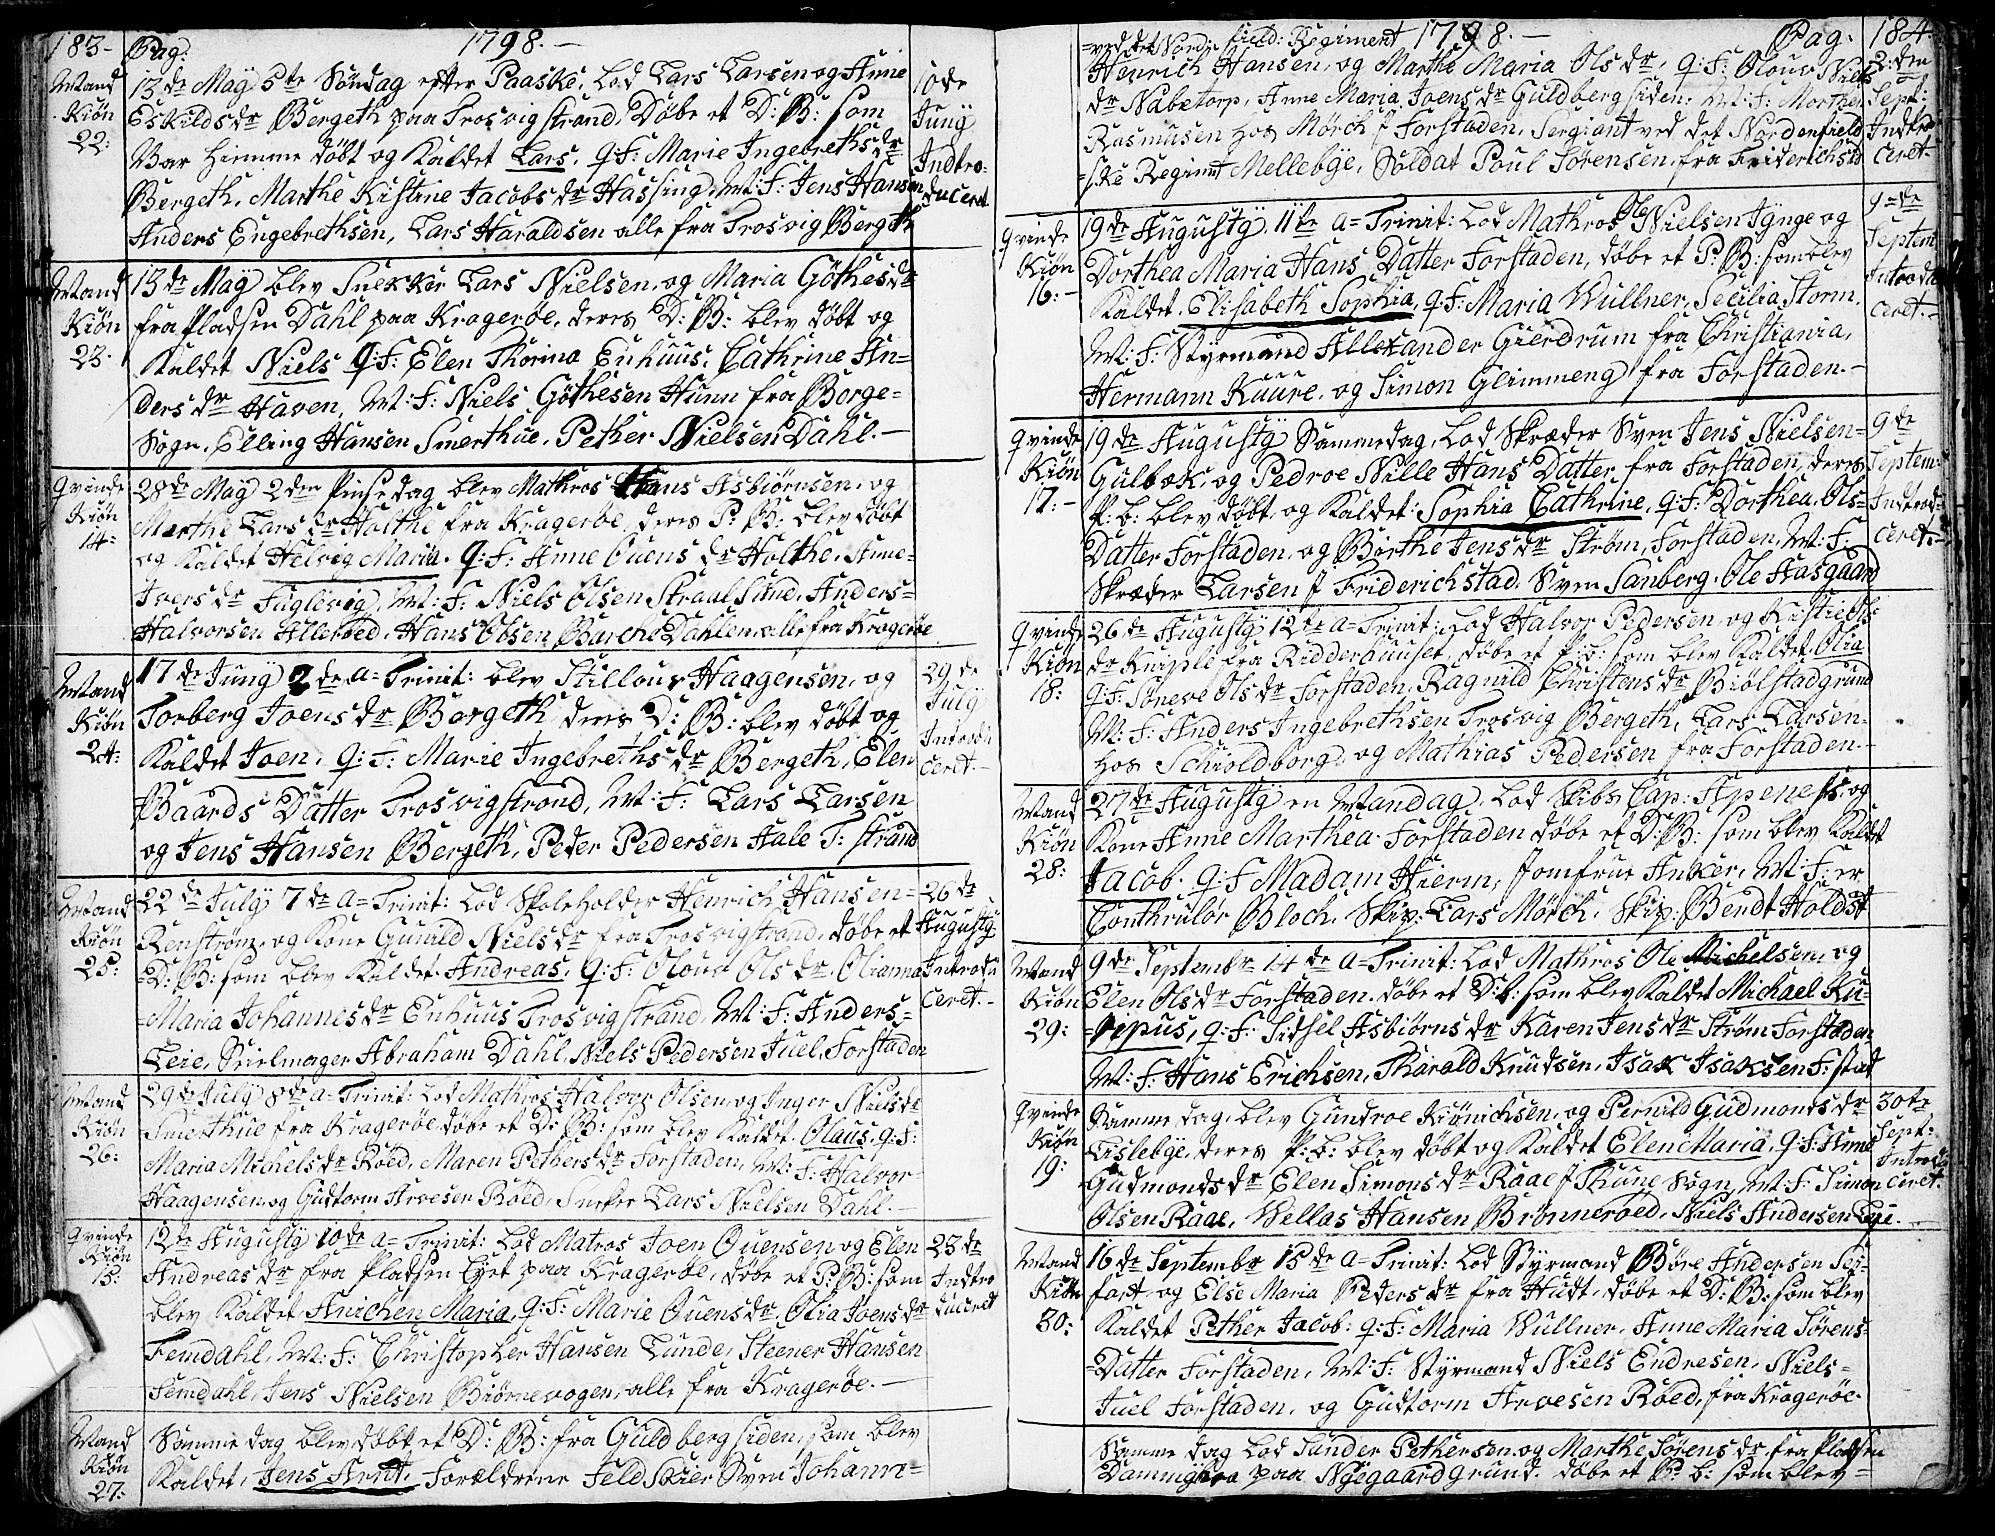 183- Pag: 1798.-
Mand Kiøn 22:
13de Maÿ 5te Søndag efter Paaske, Lod Lars Larsen og Anne
Eskildsdr Bergeth paa Trosvigstrand, Døbe et D: B: som
Var hiemme døbt og Kaldet Lars. Q: F: Marie Ingebrethsdr
Bergeth, Marthe Kistine Jacobsdr Hassing, M: F: Jens Hansen
Anders Engebrethsen, Lars Haraldsen alle fra Trosvig Bergeth
10de Junÿ Indtro-duceret
Mand Kiøn 23.
13de Maÿ blev Snekker Lars Nielsen, og Maria Göthesdr
fra Pladsen Dahl paa Kragerøe, deres D: B: blev døbt og
Kaldet Niels Q: F: Elen Thorina Enhuus, Cathrine An-
dersdr Haven, M: F: Niels Göthesen Hunn fra Borge-
Sogn, Elling Hansen Smerthue, Pether Nielsen Dahl.-
Qvinde Kiøn 14:
28de Maÿ 2den Pinsedag blev Mathros Hans Asbiørnsen, og
Marthe Larsdr Holthe fra Kragerøe, deres P: B: blev døbt
og Kaldet Helvig Maria. Q: F: Anne Ouensdr Holthe, Anne-
Iversdr Fuglevig, M: F: Niels Olsen Straalsund, Anders-
Halvorsen Allerøed, Hans Olsen Barch Dahlen alle fra Kragerøe
Mand Kiøn 24:
17de Junÿ 2de a= Trinit: blev Stillouv Haagensen, og
Torberg Joensdr Bergeth, deres D: B: blev døbt og
Kaldet Joen, Q: F: Marie Ingebrethsdr Bergeth, Elen
Baards Datter Trosvigstrond, M: F: Lars Larsen
og Jens Hansen Bergeth, Peder Pedersen Hale T: Strand
29de Julÿ Introdu ceret.-
Mand Kiøn 25:
22de Julÿ 7de a= Trinit: Lod Skoleholder Henrich Hansen-
Renstrøm, og Kone Gunild Nielsdr fra Trosvigstrand, døbe et
D: B: som blev Kaldet Andreas, Q: F: Olouv Olsdr, Olianna
=Maria Johannesdr Enhuus Trosvigstrand, M: F: Anders=
Leie, Seielmager Abraham Dahl, Niels Pedersen Juel, Forstaden
26de Augustÿ Introdu ceret.-
Mand Kiøn 26:
29de Julÿ 8de a= Trinit: Lod Mathros Halvor Olsen, og Inger Nielsdr
Smerthue fra Kragerøe døbe et D: B: som blev Kaldet Olaus, Q: F:
Maria Michelsdr Røed, Maren Pethersdr Forstaden, M: F: Halvor
Haagensen, og Gudtorm Arvesen Røed, Snekker Lars Nielsen Dahl.-
Qvinde Kiøn 15:
12te Augustÿ 10de a= Trinit: Lod Matros Joen Ouensen og Elen
Andreasdr fra Pladsen Lÿet paa Kragerøe, døbe et P: B: som
blev Kaldet Anichen Maria, Q: F: Marie Ouensdr, Olia Joensdr
Femdahl, M: F: Christopher Hansen Lunde, Steener Hansen
Femdahl, Jens Nielsen Biørnevogen, alle fra Kragerøe.-
23de Indtro duceret
Mand Kiøn 27:
Samme dag blev døbt et D: B: fra Guldbergsiden, som blev
Kaldet, Jens Arnt. Forældrene Feldskier Sven Johann=
=ved det Nord: field: Regiment 1798.- Pag: 184
Henrich Hansen, og Marthe Maria Olsdr, Q: F: Olouv Niels
dr Nabetorp, Anne Maria Joensdr Guldbergsiden. M: F: Morthen
Rasmusen hos Mörch f Forstaden, Sergiant ved det Nordenfield
=ske Regimt Mellebÿe, Soldat Poul Sørensen, fra Friderichstd
2:den Sept: Indtro ceret.-
Qvinde Kiøn 16:-
19de Augustÿ 11te a= Trinit: Lod Mathros Ole Nielsen Iÿnge og
Dorthea Maria Hans Datter Forstaden, døbe et P: B: som blev
Kaldet Elisabeth Sophia, Q: F: Maria Wullner, Secilia Storm,
M: F: Stÿrmand Allexander Gierdrum fra Christiania,
Hermann Kuure, og Simon Glimmeng fra Forstaden.-
9=de Septem Introdu ceret.-
Qvinde Kiøn 17:-
19de Augustÿ Sammedag, Lod Skræder Sven Jens Nielsen=
Gulbek, og Pedroe Nille Hans Datter fra Forstaden, deres
P: b: blev døbt og Kaldet Sophia Cathrine, Q: F: Dorthea Ols=
Datter Forstaden, og Birthe Jensdr Strøm, Forstaden, M: F:
Skræder Larsen f Friderichstad, Sven Sanberg, Ole Hasgaard
9de Septem: Indtrod= ceret.-
Qvinde Kiøn 18:
26de Augustÿ 12te a= Trinit: Lod Halvor Pedersen og Kistie Ols
dr Kniple fra Ridderhuuset, døbe et P: b: som blev Kaldet Olia
Q: F: Søneve Olsdr Forstaden, Ragnild Christensdr Biølstadgrund
M: F: Anders Ingebrethsen Trosvig Bergeth, Lars Larsen
hos Schioldborg, og Mathias Pedersen fra Forstaden.-
Mand Kiøn 28:
27de Augustÿ en Mandag, Lod Skibs Cap: Apenes, og
Kone Anne Marthea Forstaden døbe et D: B: som blev Kaldet
Jacob. Q: F Madam Hierm, Jomfrue Anker, M: F: er
Conthrulør Bloch, Skip: Lars Mörch, Skip: Bendt Holdst
Mand Kiøn 29:
9de Septembr 14de a= Trinit: Lod Mathros Ole Michelsen, og
Elen Olsdr Forstaden, døbe et D: b: som blev Kaldet Michael Ku=
=ripus, Q: F: Sidsel Asbiørnsdr Karen Jensdr Strøm Forstaden
M: F: Hans Erichsen, Tharald Knudsen, Isak Isaksen F: stad
Qvinde Kiøn 19:
Samme dag, blev Gundroe Kiønichsen, og Pernild Gudmondsdr
Lislebÿe, deres P: b: blev døbt og Kaldet Elen Maria, Q: F: Anne
Gudmondsdr Elen Simonsdr Raae f Thune Sogn, M: F: Simon
Olsen Raae, Vellas Hansen Brønnerøed, Niels Andersen Leje.-
30te Sept: Introdu ceret.
Mand Kiøn 30:
16de Septembr 15de a= Trinit: Lod Stÿrmand Børe Andersen Sei-
fart, og Else Maria Pedersdr fra Hudt, døbe et D: B: som blev
Kaldet Pether Jacob: Q: F: Maria Wullner, Anne Maria Sørens=
=Datter Forstaden, M: F: Stÿrmand Niels Endresen, Niels=
Juel Forstaden, og Gudtorm Arvesen Røed, fra Kragerøe.
Samme dag Lod Sunder Pethersen, og Marthe Sørensdr, fra Pladsen
paa Nÿegaard grund. døbe et P: b: som blev=